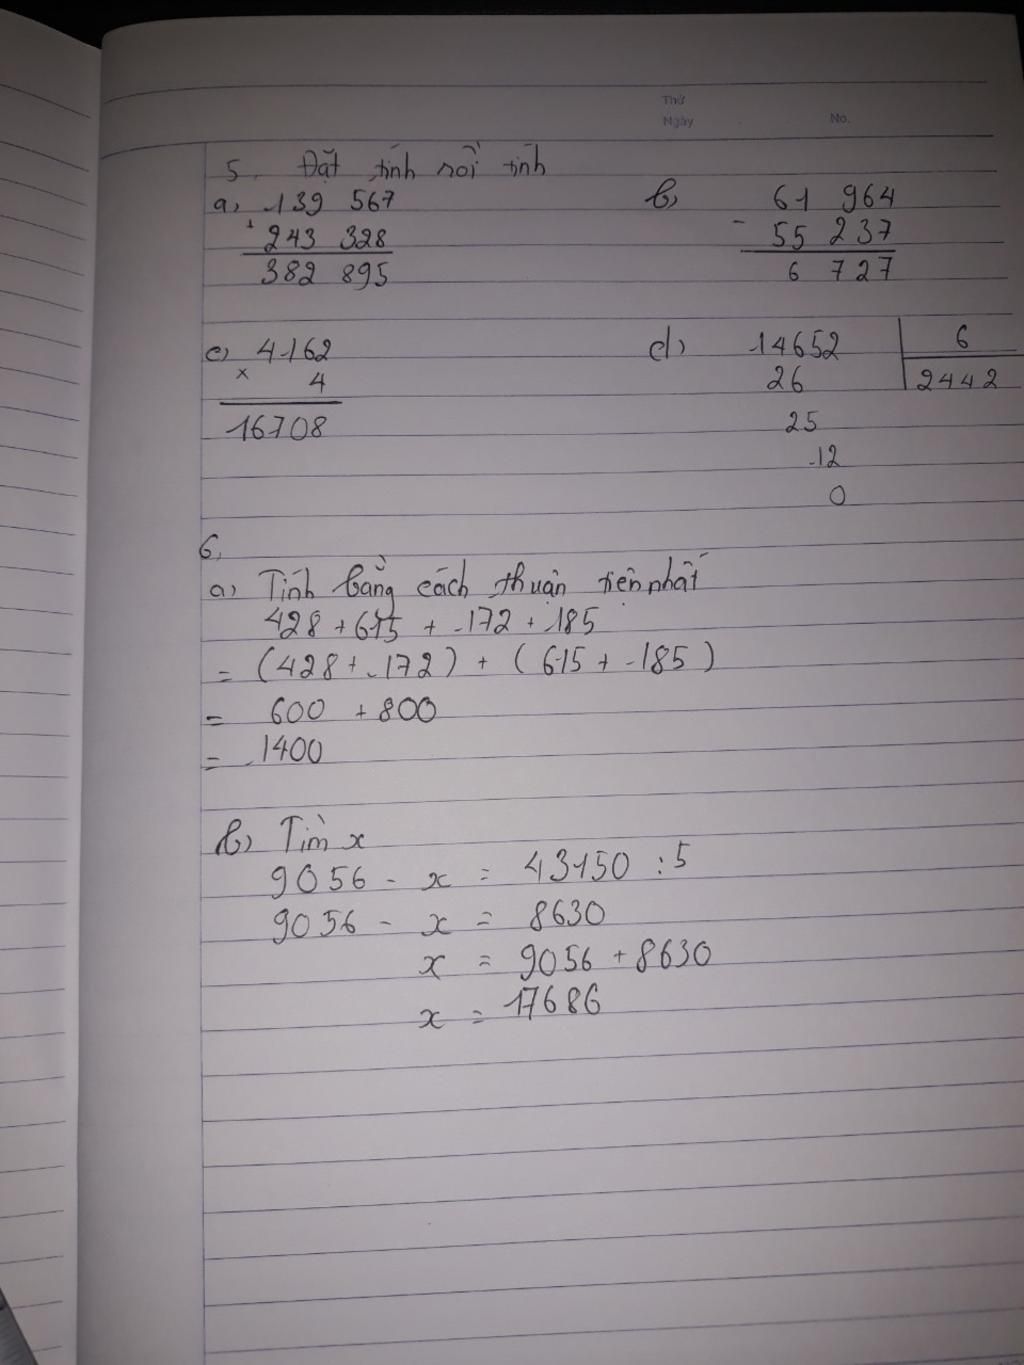 Thứ
Ngày No.
5, Đặt tính rồi tính
a, 139 567 b, 61 964
+ 243 328 - 55 237
382 895 6 727
c, 4162 d, 14652 6
x 4 26 2442
16708 25
12
0
6,
a, Tính bằng cách thuận tiện nhất
428 + 615 + 172 + 185
= (428 + 172) + (615 + 185)
= 600 + 800
= 1400
b, Tìm x
9056 - x = 43150 : 5
9056 - x = 8630
x = 9056 + 8630
x = 17686